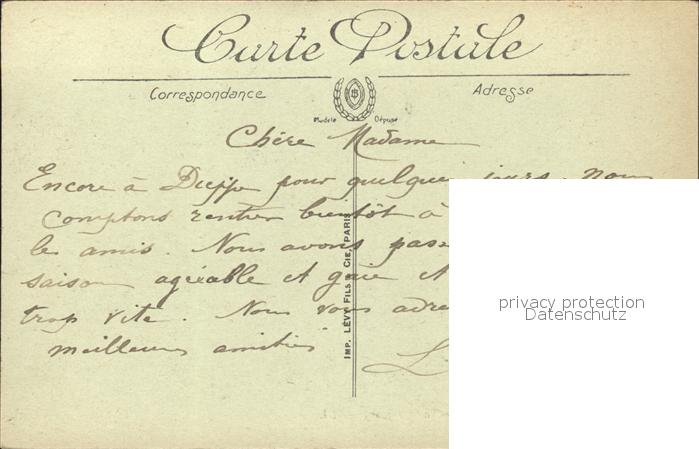 Carte Postale
Correspondance Adresse
Modèle Déposé
Chére Madame
Encore à Dieppe pour quelques jours. nous
comptons rentrer bientôt à
les amis. Nous avons pass
saison agréable et gaie et
trop vite. Nous vous adre
meilleures amitiés
IMP. LÉVY FILS & CIE, PARIS
privacy protection
Datenschutz